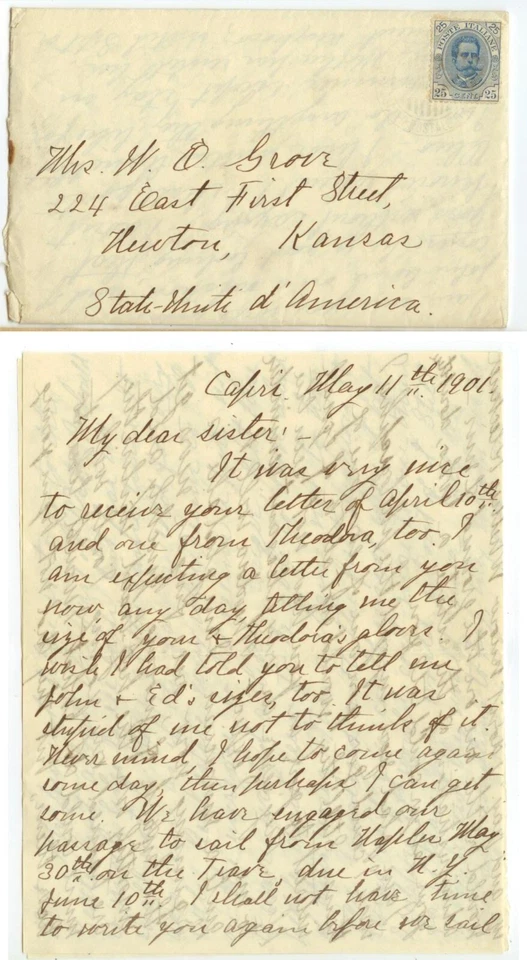 25 POSTE ITALIANE 25
25 CENT. 25
Mrs. W. O. Grove
224 East First Street,
Newton, Kansas
State-Unite d'America.
Capri. May 11th 1901.
My dear sister: -
It was very nice
to receive your letter of April 10th
and one from Theodora, too. I
am expecting a letter from you
now any day, telling me the
size of your + Theodora's gloves. I
wish I had told you to tell me
John + Ed's sizes, too. It was
stupid of me not to think of it.
Never mind, I hope to come again
some day, then perhaps I can get
some. We have engaged our
passage to sail from Naples May
30th on the Trave, due in N.Y.
June 10th. I shall not have time
to write you again before we sail